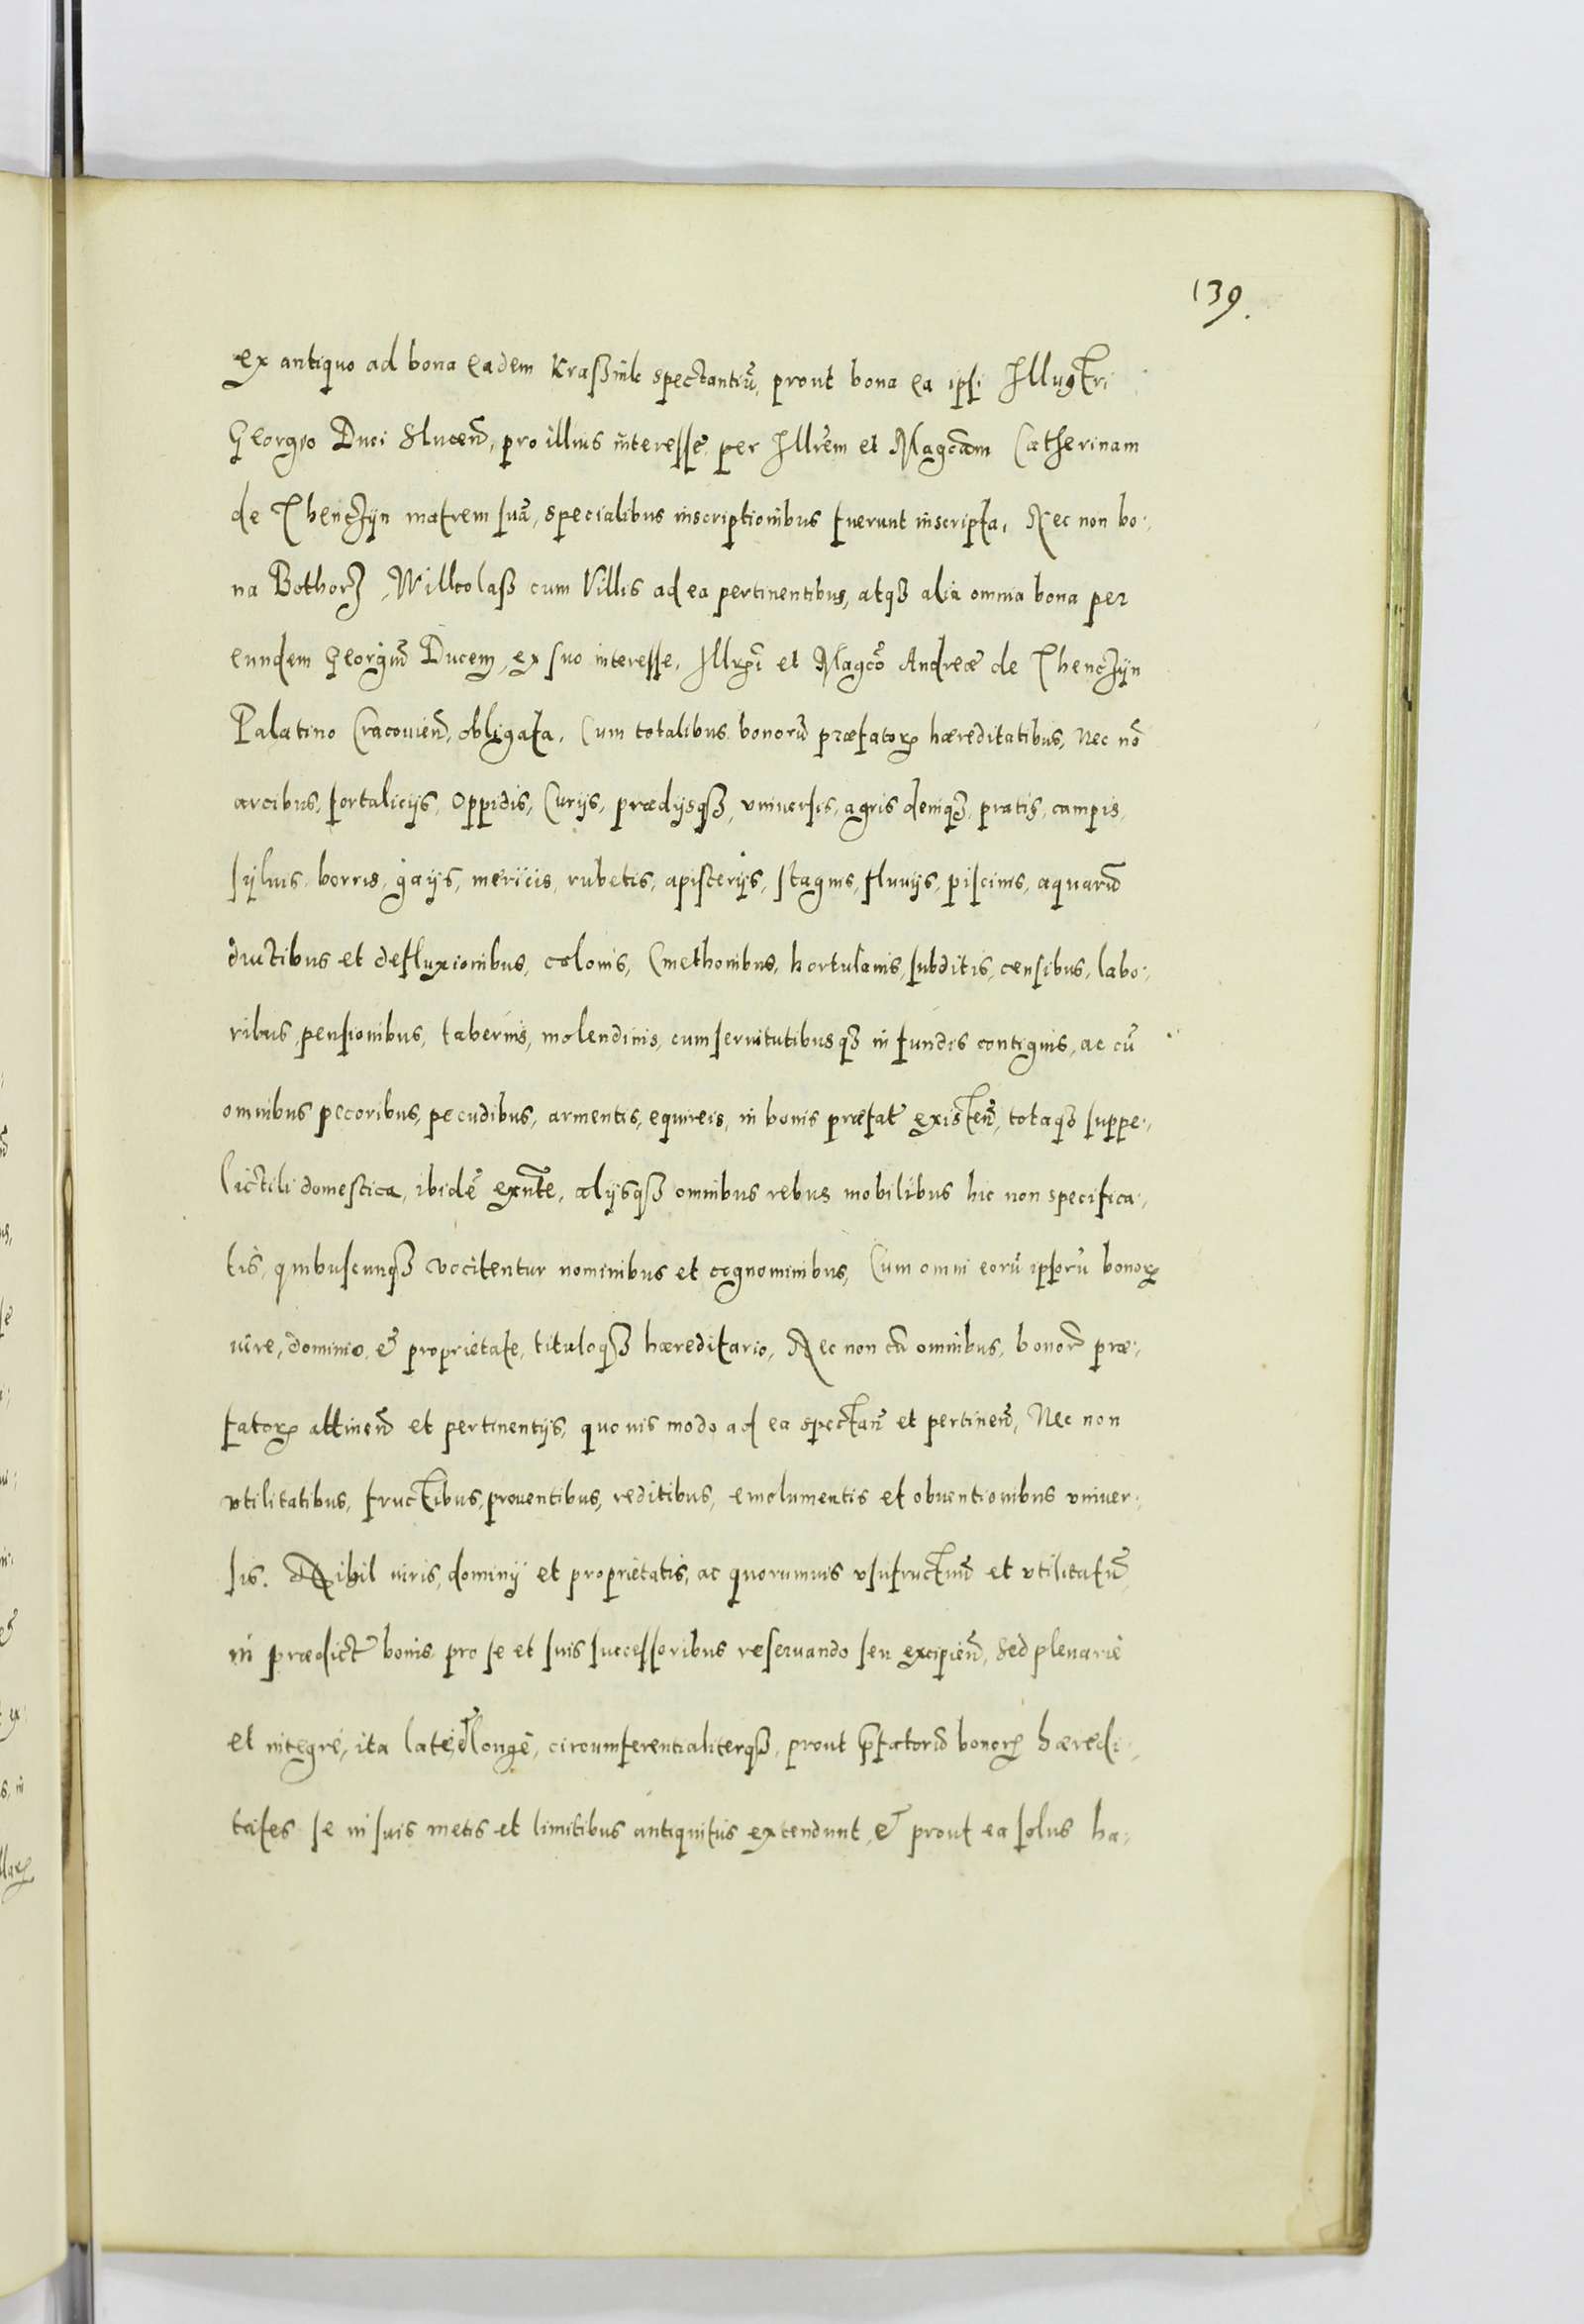 139.
ex antiquo ad bona eadem Kraßnik spectantiũ, prout bona ea ipsi Illustri
Georgio Duci Slucen̄, pro illius interesse, per Illrem et Magcam Catherinam
de Thenczijn matrem suã, specialibus inscriptionibus fuerunt inscripta, Nec non bo:
na Bothorz, Willcolaß cum Villis ad ea pertinentibus, atqȝ alia omnia bona per
eundem Georgiũ Ducem, ex suo interesse, Illri et Magco Andreæ de Thenczijn
Palatino Cracouien̄, obligata. Cum totalibus bonorũ præfatorꝝ hæreditatibus, Nec nõ
arcibus, fortalicijs, Oppidis, Curijs, prædijsqȝ, vniuersis, agris deniqȝ, pratis, campis,
syluis, borris, gaijs, mericis, rubetis, apisterijs, stagnis, fluuijs, piscinis, aquarũ
ductibus et defluxionibus, colonis, Cmethonibus, hortulanis, subditis, censibus, labo:
ribus, pensionibus, tabernis, molendinis, cum seruitutibusqȝ in fundis contiguis, ac cũ
omnibus pecoribus, pecudibus, armentis, equireis, in bonis præfat existen̄, totaqȝ suppe:
lictili domestica, ibidẽ exnte, alijsqȝ omnibus rebus mobilibus hic non specifica:
tis, quibuscunqȝ vocitentur nominibus et cognominibus, Cum omni eorũ ipsorũ bonorꝝ
iure, dominio, et proprietate, tituloqȝ hæreditario, Nec non cũ omnibus, bonorũ præ:
fatorꝝ attinen̄ et pertinentijs, quouis modo ad ea spectan̄ et pertinen̄, Nec non
vtilitatibus, fructibus, prouentibus, reditibus, emolumentis et obuentionibus vniuer:
sis. Nihil iuris, dominij et proprietatis, ac quorumuis vsufructuũ et vtilitatũ,
in prædict bonis pro se et suis successoribus reseruando seu excipien̄, sed plenariè
et integrè, ita latè, et longè, circumferentialiterqȝ, prout pfatorũ bonorꝝ hæredi:
tates se in suis metis et limitibus antiquitus extendunt, et prout ea solus ha: